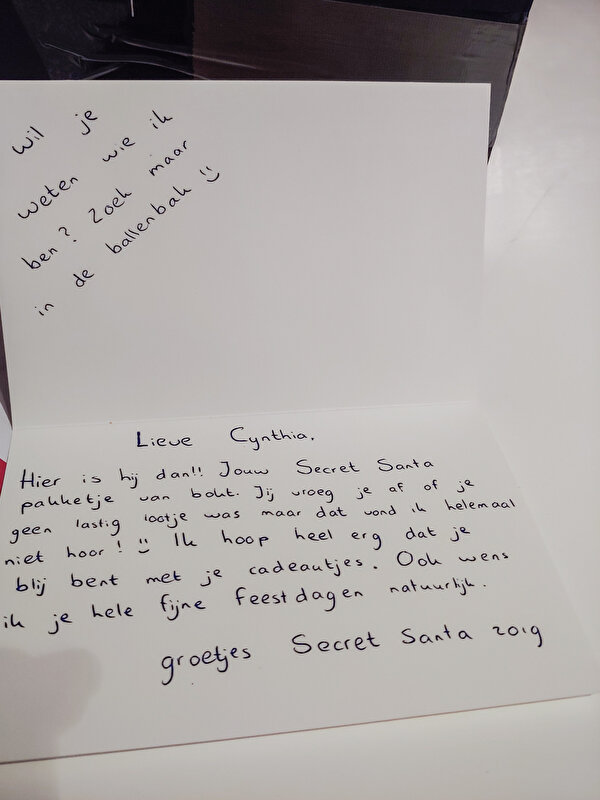 Wil je
weten wie ik
ben? Zoek maar
in de ballenbak :)
Lieve Cynthia,
Hier is hij dan!! Jouw Secret Santa
pakketje van bokt. Jij vroeg je af of je
geen lastig lootje was maar dat vond ik helemaal
niet hoor! :) Ik hoop heel erg dat je
blij bent met je cadeautjes. Ook wens
ik je hele fijne feestdagen natuurlijk.
groetjes Secret Santa 2019